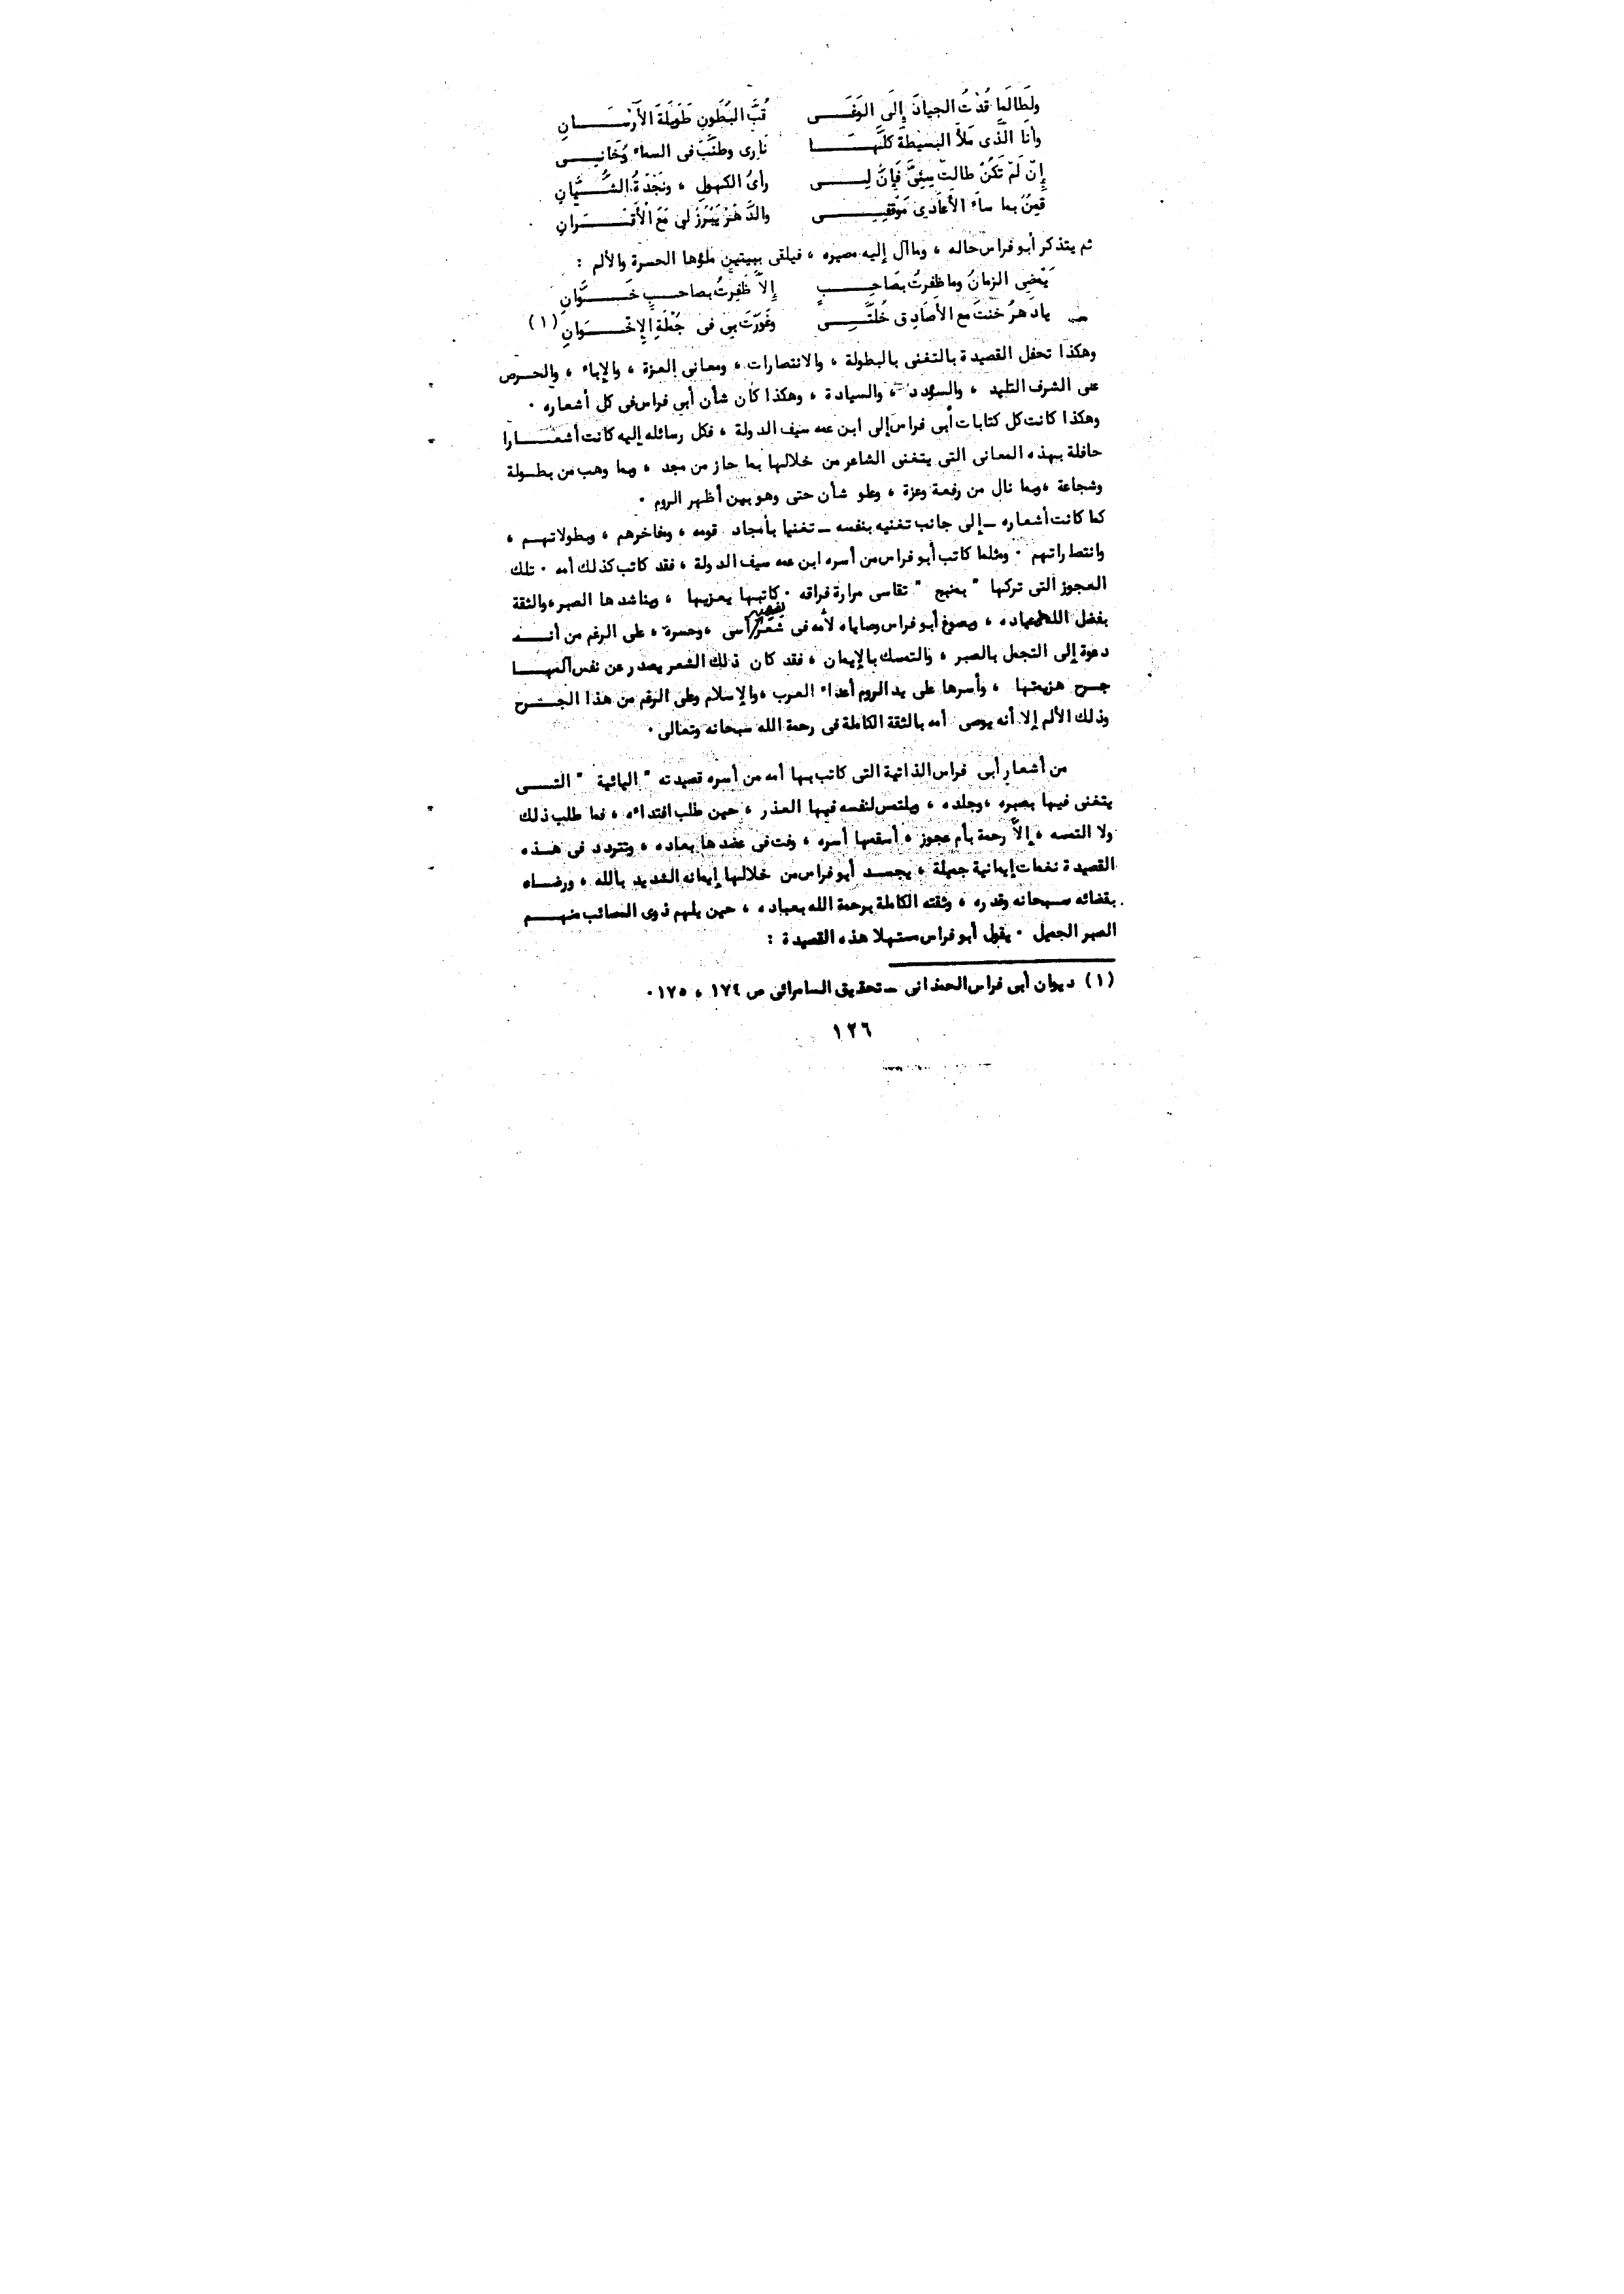 ولَطَالَمَا قُدْتُ الجيادَ إِلَى الوَغَــــى قُبَّ البُطُونِ طَوِيلَةَ الأَرْسَـــــانِ
وأنَا الَّذى مَلأَ البَسِيطَةَ كلَّهـــــــا نَارِى وطنَّبَ فى السماء دُخَانِيـــــى
إِنْ لَمْ تَكُنْ طالتْ سِنِىَّ فَإِنَّ لِـــــى رأىُ الكهولِ ، ونَجْدَةُ الشُّبَّـــانِ
قَمِنٌ بما ساءَ الأَعَادِى مَوْقِفِيـــــى والدَّهْرُ يَبْرُزُ لى مَعَ الأَقْـــــرَانِ ٠
ثم يتذكر أبو فراس حاله ، وما آل إليه مصيره ، فيلقى ببيتين ملؤها الحسرة والألم :
يَمْضِى الزمانُ وما ظفرتُ بصَاحِـــــبٍ إِلاَّ ظَفِرتُ بصاحـــبٍ خَـــوَّانِ
يادَهرُ خُنْتَ مع الأَصَادِقِ خُلَّتِـــــى وغَدَرْتَ بى فى جُمْلَةِ الإِخْـــــوَانِ (١)
وهكذا تحفل القصيدة بالتغنى بالبطولة ، والانتصارات ، ومعانى العزة ، والإباء ، والحــرص
على الشرف التليد ، والسؤدد ، والسيادة ، وهكذا كان شأن أبي فراس فى كل أشعاره ٠
وهكذا كانت كل كتابات أبى فراس إلى ابن عمه سيف الدولة ، فكل رسائله إليه كانت أشعـــارا
حافلة بهذه المعانى التى يتغنى الشاعر من خلالها بما حاز من مجد ، وبما وهب من بطــولة
وشجاعة ، وبما نال من رفعة وعزة ، وعلو شأن حتى وهو بين أظهر الروم ٠
كما كانت أشعاره ــ إلى جانب تغنيه بنفسه ــ تغنيا بأمجاد قومه ، ومفاخرهم ، وبطولاتهــم ،
وانتصاراتهم ٠ ومثلما كاتب أبو فراس من أسره ابن عمه سيف الدولة ، فقد كاتب كذلك أمه ٠ تلك
العجوز التى تركها " بمنبج " تقاسى مرارة فراقه ٠ كاتبها يعزيها ، ويناشدها الصبر ، والثقة
بفضل الله على عباده ، ويصوغ أبو فراس وصاياه لأمه فى شعر يفيض أسى ، وحسرة ، على الرغم من أنـــه
دعوة إلى التجمل بالصبر ، والتمسك بالإيمان ، فقد كان ذلك الشعر يصدر عن نفس آلمهـــا
جــرح هزيمتها ، وأسرها على يد الروم أعداء العرب ، والإسلام وعلى الرغم من هذا الجــرح
وذلك الألم إلا أنه يوصى أمه بالثقة الكاملة فى رحمة الله سبحانه وتعالى ٠
من أشعار أبى فراس الذاتية التى كاتب بها أمه من أسره قصيدته " اليائية " التـــى
يتغنى فيها بصبره ، وجلده ، ويلتمس لنفسه فيها العذر ، حين طلب افتداءه ، فما طلب ذلك
ولا التمسه ، إلاَّ رحمة بأم عجوز ، أسقمها أسره ، وفت فى عضدها بعاده ، وتتردد فى هــذه
القصيدة نغمات إيمانية جميلة ، يجســد أبو فراس من خلالها إيمانه الشديد بالله ، ورضــاه
بقضائه سبحانه وقدره ، وثقته الكاملة برحمة الله بعباده ، حين يلهم ذوى المصائب منهـــم
الصبر الجميل ٠ يقول أبو فراس مستهلا هذه القصيدة :
(١) ديوان أبى فراس الحمدانى ــ تحقيق السامرائى ص ١٧٤ ، ١٧٥ ٠
١٢٦